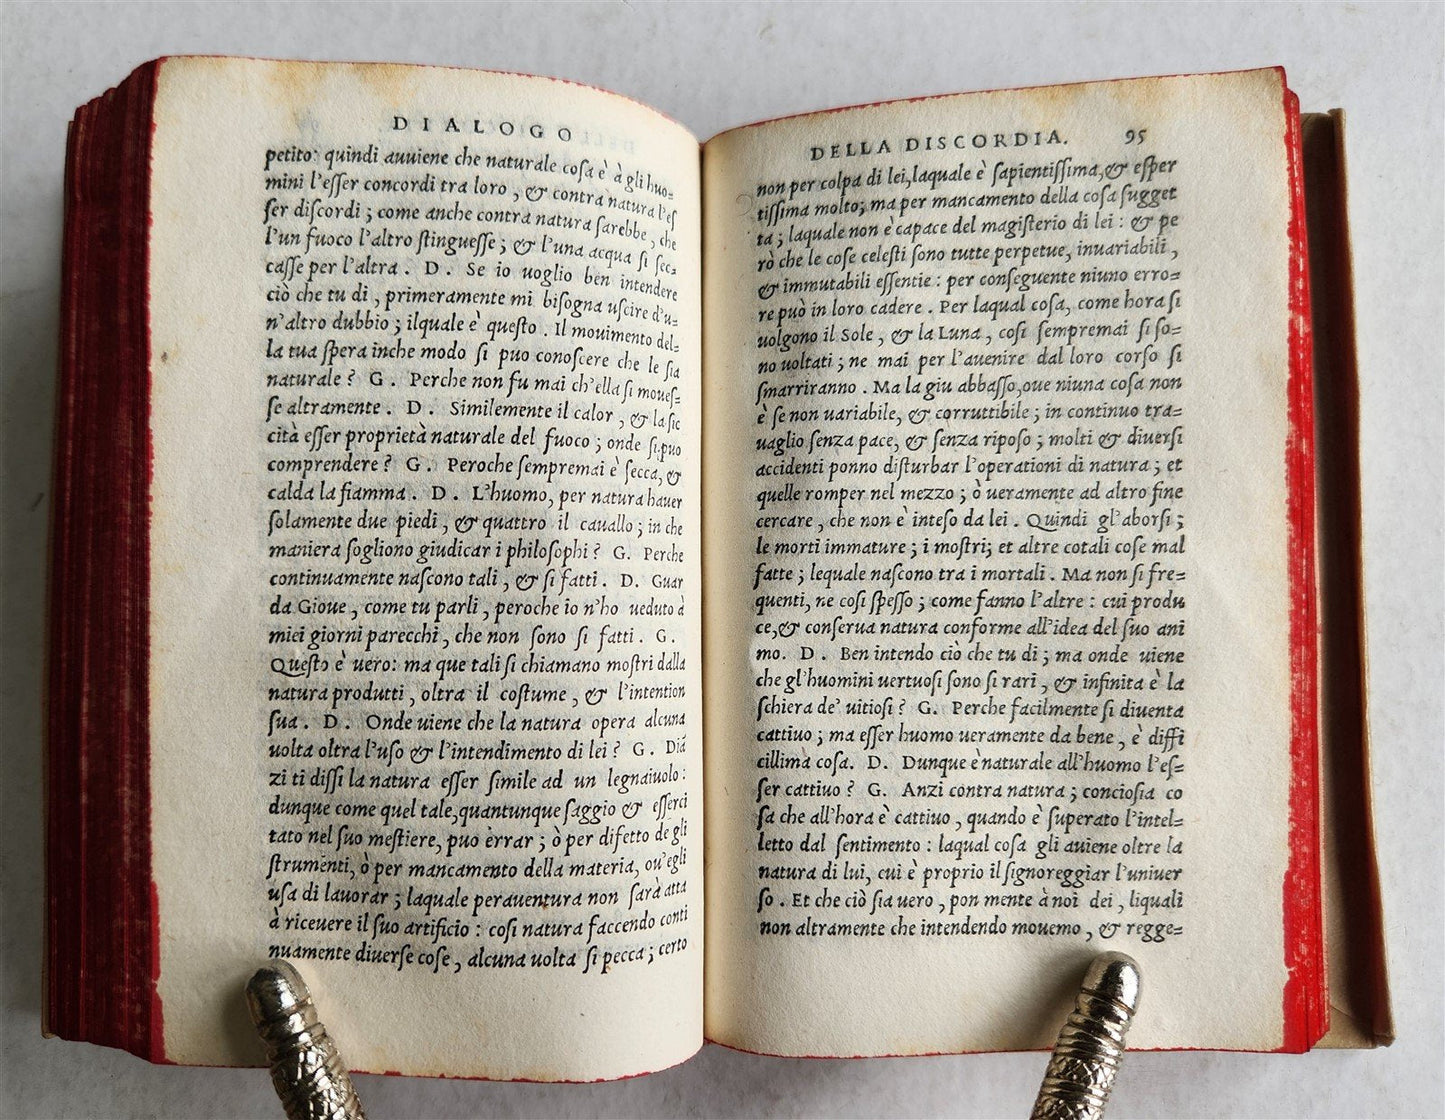 DIALOGO
petito: quindi auuiene che naturale cosa è à gli huo=
mini l'esser concordi tra loro, & contra natura l'es
ser discordi; come anche contra natura sarebbe, che
l'un fuoco l'altro stinguesse; & l'una acqua si sec=
casse per l'altra. D. Se io uoglio ben intendere
ciò che tu di, primeramente mi bisogna uscire d'u=
n'altro dubbio; ilquale è questo. Il mouimento del=
la tua spera inche modo si puo conoscere che le sia
naturale? G. Perche non fu mai ch'ella si moues=
se altramente. D. Similemente il calor, & la sic
cità esser proprietà naturale del fuoco; onde si puo
comprendere? G. Peroche sempremai è secca, &
calda la fiamma. D. L'huomo, per natura hauer
solamente due piedi, & quattro il cauallo; in che
maniera sogliono giudicar i philosophi? G. Perche
continuamente nascono tali, & si fatti. D. Guar
da Gioue, come tu parli, peroche io n'ho ueduto à
miei giorni parecchi, che non sono si fatti. G.
Questo è uero: ma que tali si chiamano mostri dalla
natura produtti, oltra il costume, & l'intention
sua. D. Onde uiene che la natura opera alcuna
uolta oltra l'uso & l'intendimento di lei? G. Diā
zi ti dissi la natura esser simile ad un legnaiuolo:
dunque come quel tale, quantunque saggio & esserci
tato nel suo mestiere, puo errar; ò per difetto de gli
strumenti, ò per mancamento della materia, ou'egli
usa di lauorar; laquale perauentura non sarà atta
à riceuere il suo artificio: cosi natura faccendo conti
nuamente diuerse cose, alcuna uolta si pecca; certo
DELLA DISCORDIA. 95
non per colpa di lei, laquale è sapientissima, & esper
tissima molto; ma per mancamento della cosa sugget
ta; laquale non è capace del magisterio di lei: & pe
rò che le cose celesti sono tutte perpetue, inuariabili,
& immutabili essentie: per conseguente niuno erro=
re può in loro cadere. Per laqual cosa, come hora si
uolgono il Sole, & la Luna, cosi sempremai si so=
no uoltati; ne mai per l'auenire dal loro corso si
smarriranno. Ma la giu abbasso, oue niuna cosa non
è se non uariabile, & corruttibile; in continuo tra=
uaglio senza pace, & senza riposo; molti & diuersi
accidenti ponno disturbar l'operationi di natura; et
quelle romper nel mezzo; ò ueramente ad altro fine
cercare, che non è inteso da lei. Quindi gl'aborsi;
le morti immature; i mostri; et altre cotali cose mal
fatte; lequale nascono tra i mortali. Ma non si fre=
quenti, ne cosi spesso; come fanno l'altre: cui produ
ce, & conserua natura conforme all'idea del suo ani
mo. D. Ben intendo ciò che tu di; ma onde uiene
che gl'huomini uertuosi sono si rari, & infinita è la
schiera de' uitiosi? G. Perche facilmente si diuenta
cattiuo; ma esser huomo ueramente da bene, è diffi
cillima cosa. D. Dunque è naturale all'huomo l'es=
ser cattiuo? G. Anzi contra natura; conciosia co
sa che all'hora è cattiuo, quando è superato l'intel=
letto dal sentimento: laqual cosa gli auiene oltre la
natura di lui, cui è proprio il signoreggiar l'uniuer
so. Et che ciò sia uero, pon mente à noi dei, liquali
non altramente che intendendo mouemo, & regge=